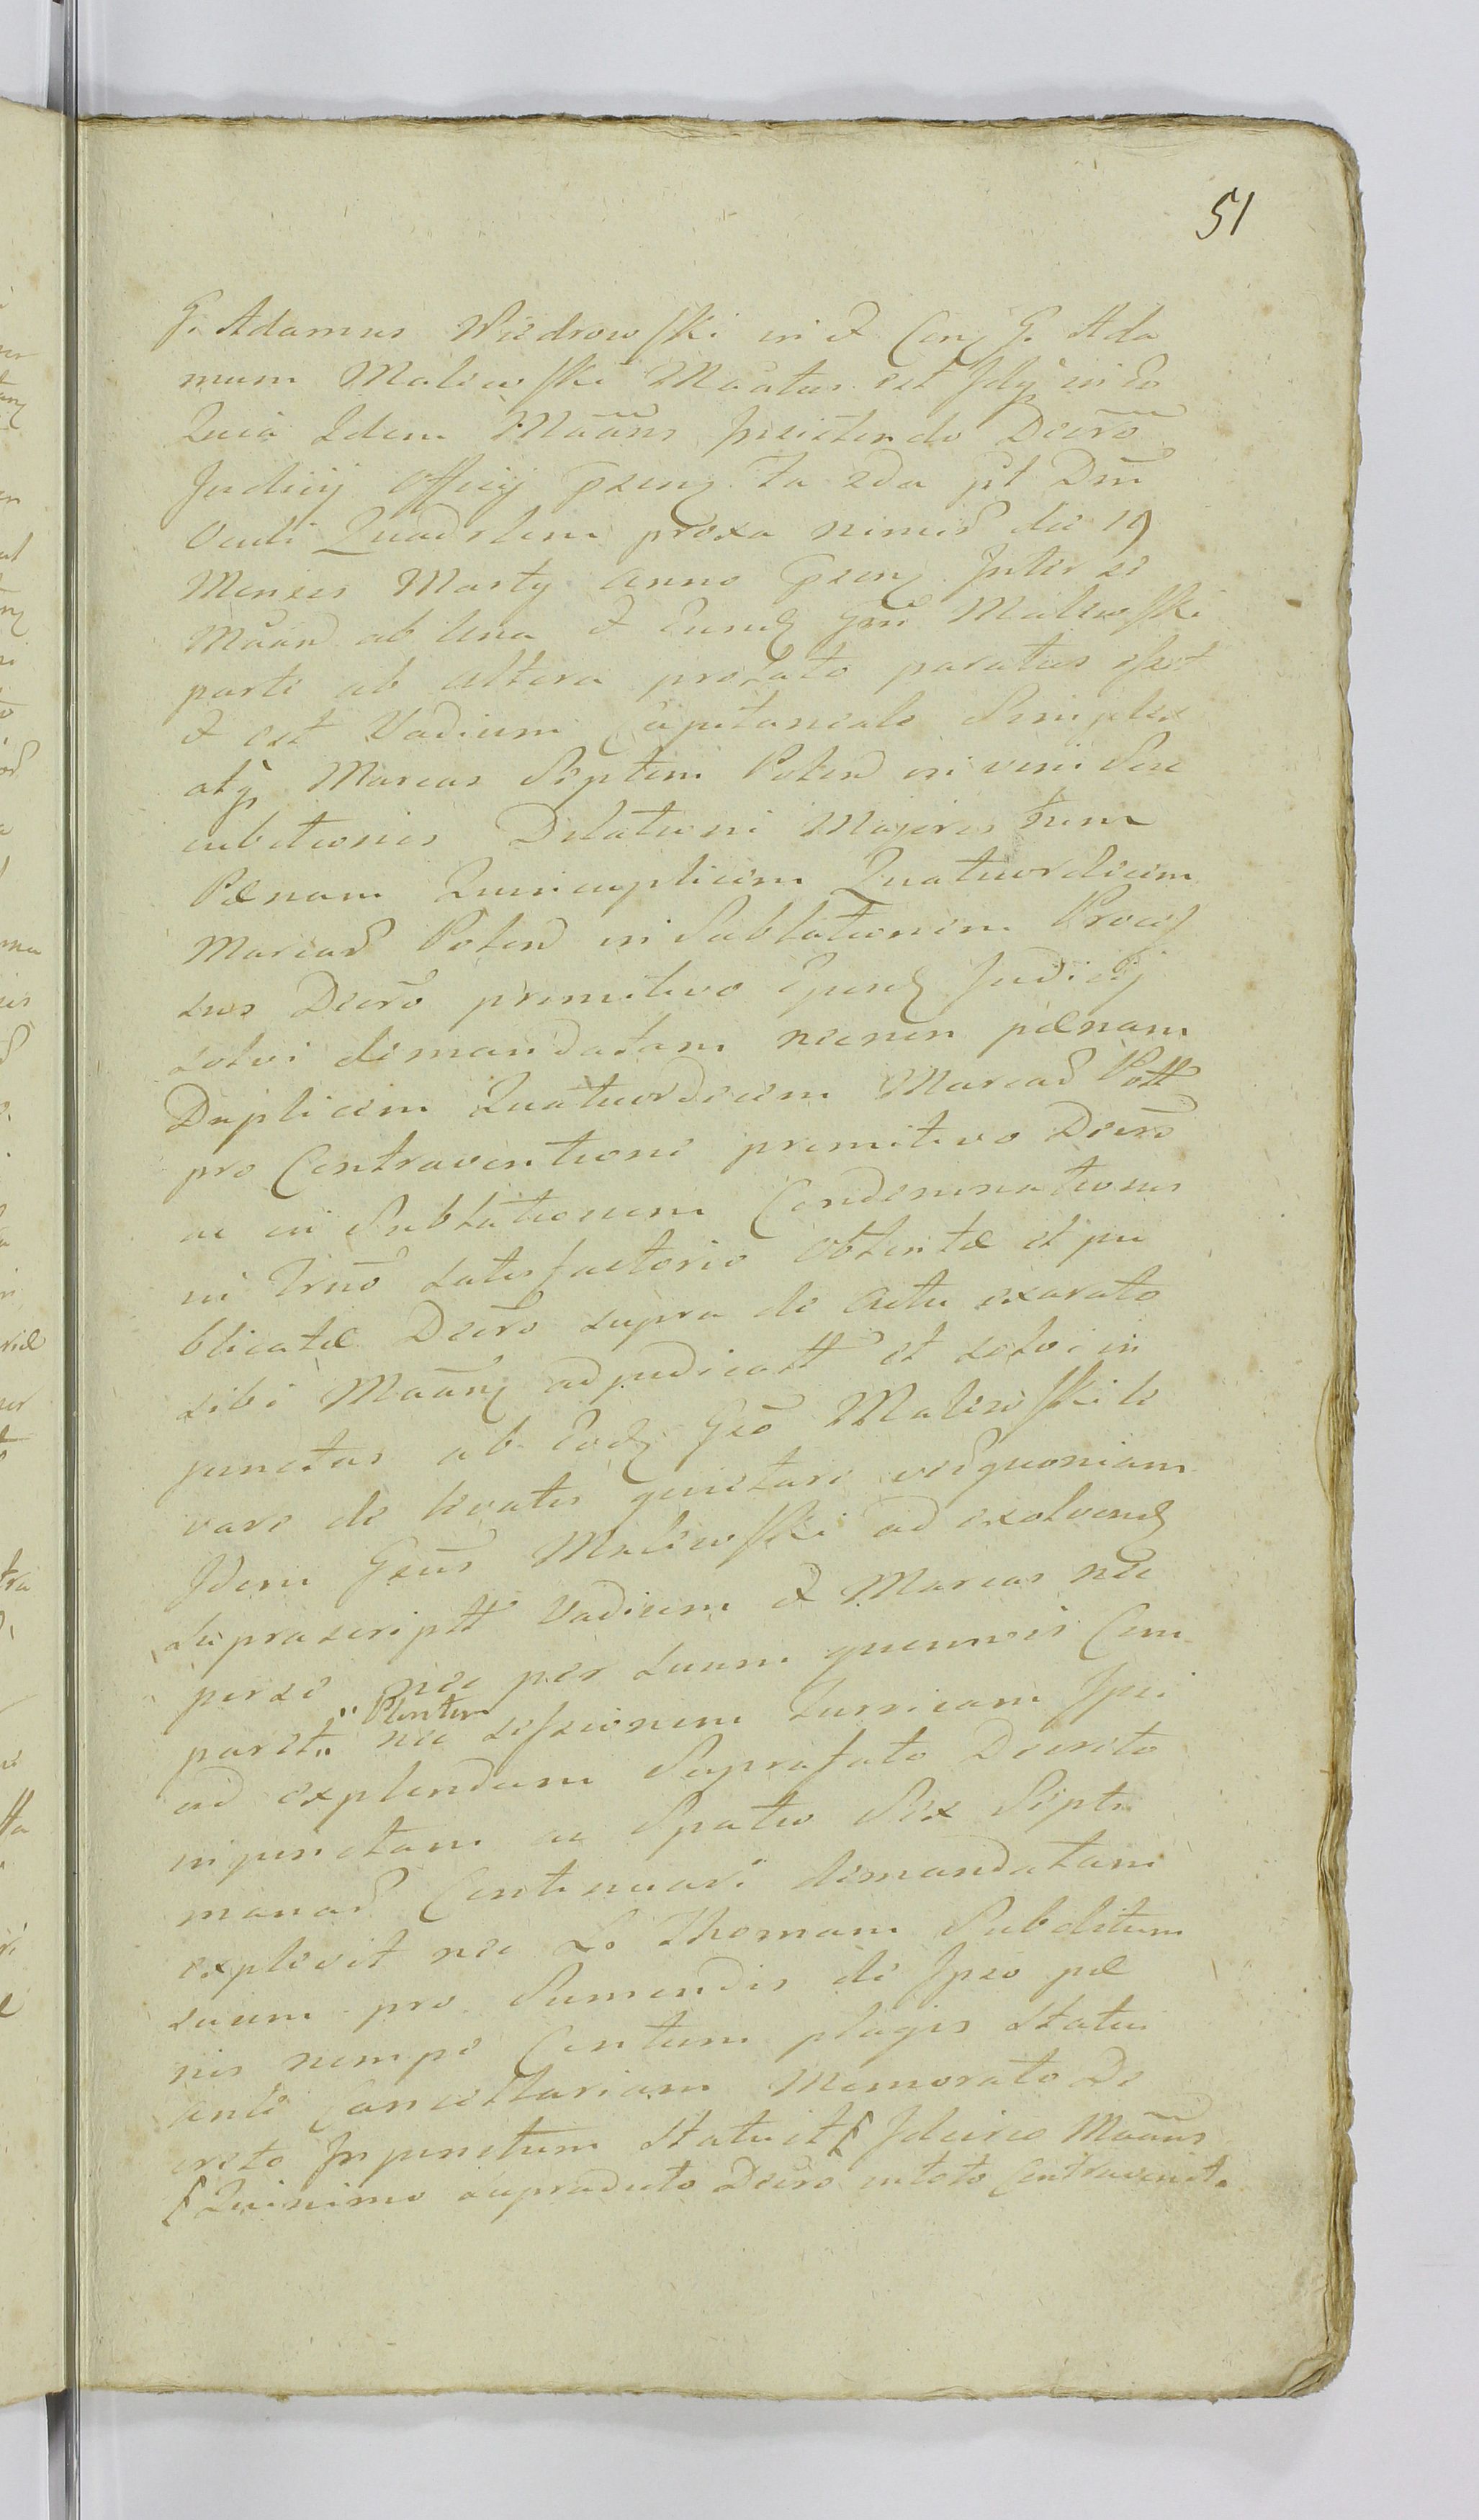 51
G. Adamus Wiedrowski in et Con G. Ada
mum Maliewski Maatus est Idq in Eo
Quia Idem Maans Invictendo Decro
Judicij Officij pzenq Fa 2da pt Dm
Oculi Quadrlem proxa nimis die 19
Menses Marty Anno pzenq Inter se
Maan ab Una et Eund Gm Maliewski
parte ab altera prolato paratus esset
et est Vadium Capitaneale Simplex
atq Marcas Septem Polen in vim Suc
cubitionis Dilationi Majoris tum
Pænam Quincuplicem Quatuordecim
Marcas Polon in Sublationem Proces
sus Decro primitivo Ejusd Judicij
solvi demandatam necnon pænam
Duplicem Quatuordecem Marcas Poll
pro Contraventione primitivo Decro
ac in Sublationem Condemnationis
in Trno satisfactorio Obtentæ et pu
blicatæ Decro supra de Actu exarato
sibi Maanq adjudicatt et solvi in
junctas ab Eodq Gso Maliewski le
vare de levatis quietare verquoniam
Idem Gsus Maliewski ad exolvend
supra script Vadium et Marcas nec
per se nec per suum quemvis Com
paret " Plenten
nec sessionem Turricam Ipsi
ad explendum Suprafato Decreto
injunctam ac Spatio Sex Septi
manas Continuari demandatam
explevit nec L. Thomam Subditum
suum pro Sumendis de Ipso pæ
nis nempe Centum plagis Statui
ante Cancellariam Memorato De
creto Injunctum Statuit Idcirco Maans
Quinimo supradicto Decro intoto Contravenit.